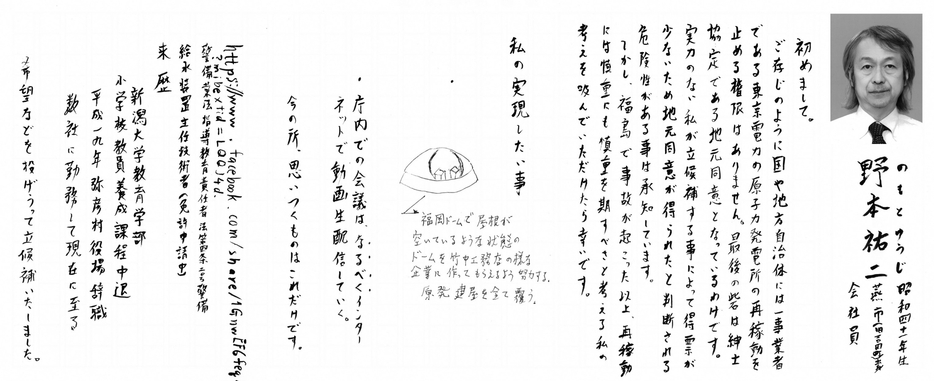 のもとゆうじ
野本祐二
昭和四十年生
燕市吉田
会社員
初めまして。
ご存じのように国や地方自治体には一事業者
である東京電力の原子力発電所の再稼動を
止める権限はありません。最後の砦は紳士
協定である地元同意となっているわけです。
実力のない私が立候補する事によって得票が
少ないため地元同意が得られたと判断される
危険性がある事は承知しています。
しかし、福島で事故が起こった以上、再稼動
には慎重にも慎重を期すべきと考える私の
考えを汲んでいただけたら幸いです。
私の実現したい事
・
福岡ドームで屋根が
空いているような状態の
ドームを竹中工務店の様な
企業に作ってもらえるよう努力する。
原発建屋を全て覆う。
・庁内での会議は、なるべくインター
ネットで動画生配信していく。
今の所、思いつくものはこれだけです。
https://www.facebook.com/share/
?mibextid=LQQJ4d
警備業法指導教育責任者
給水装置主任技術者(免許申請中)
来歴
新潟大学教育学部
小学校教員養成課程中退
平成一九年弥彦村役場辞職
数社に勤務して現在に至る
希望などを投げうって立候補いたしました。